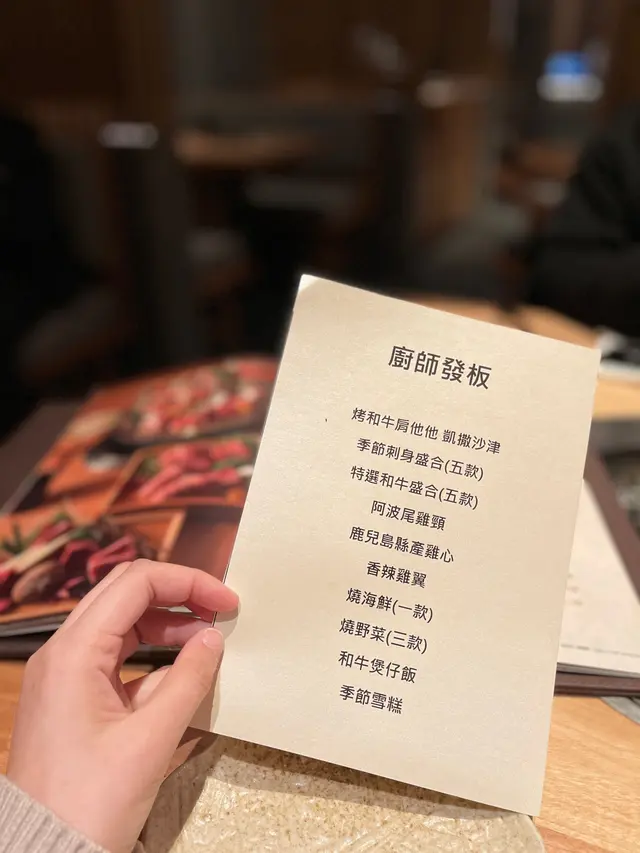 廚師發板
烤和牛肩他他 凱撒沙津
季節刺身盛合(五款)
特選和牛盛合(五款)
阿波尾雞頸
鹿兒島縣產雞心
香辣雞翼
燒海鮮(一款)
燒野菜(三款)
和牛煲仔飯
季節雪糕